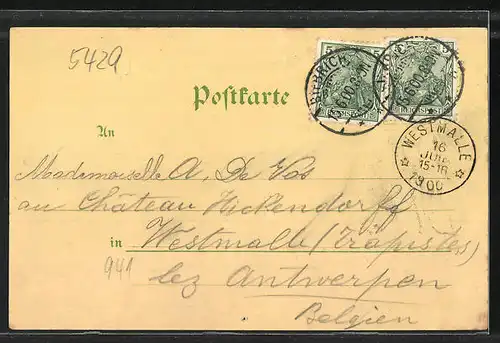 5429
5
BIEBRICH
15.6.00.8-9N
REICHSPOST
Postkarte
WESTMALLE
16
JUIN
15-16
1900
An
Mademoiselle A. De Vos
au Château Heckendorff
in Westmalle (Trapistes)
941
lez Antwerpen
Belgien